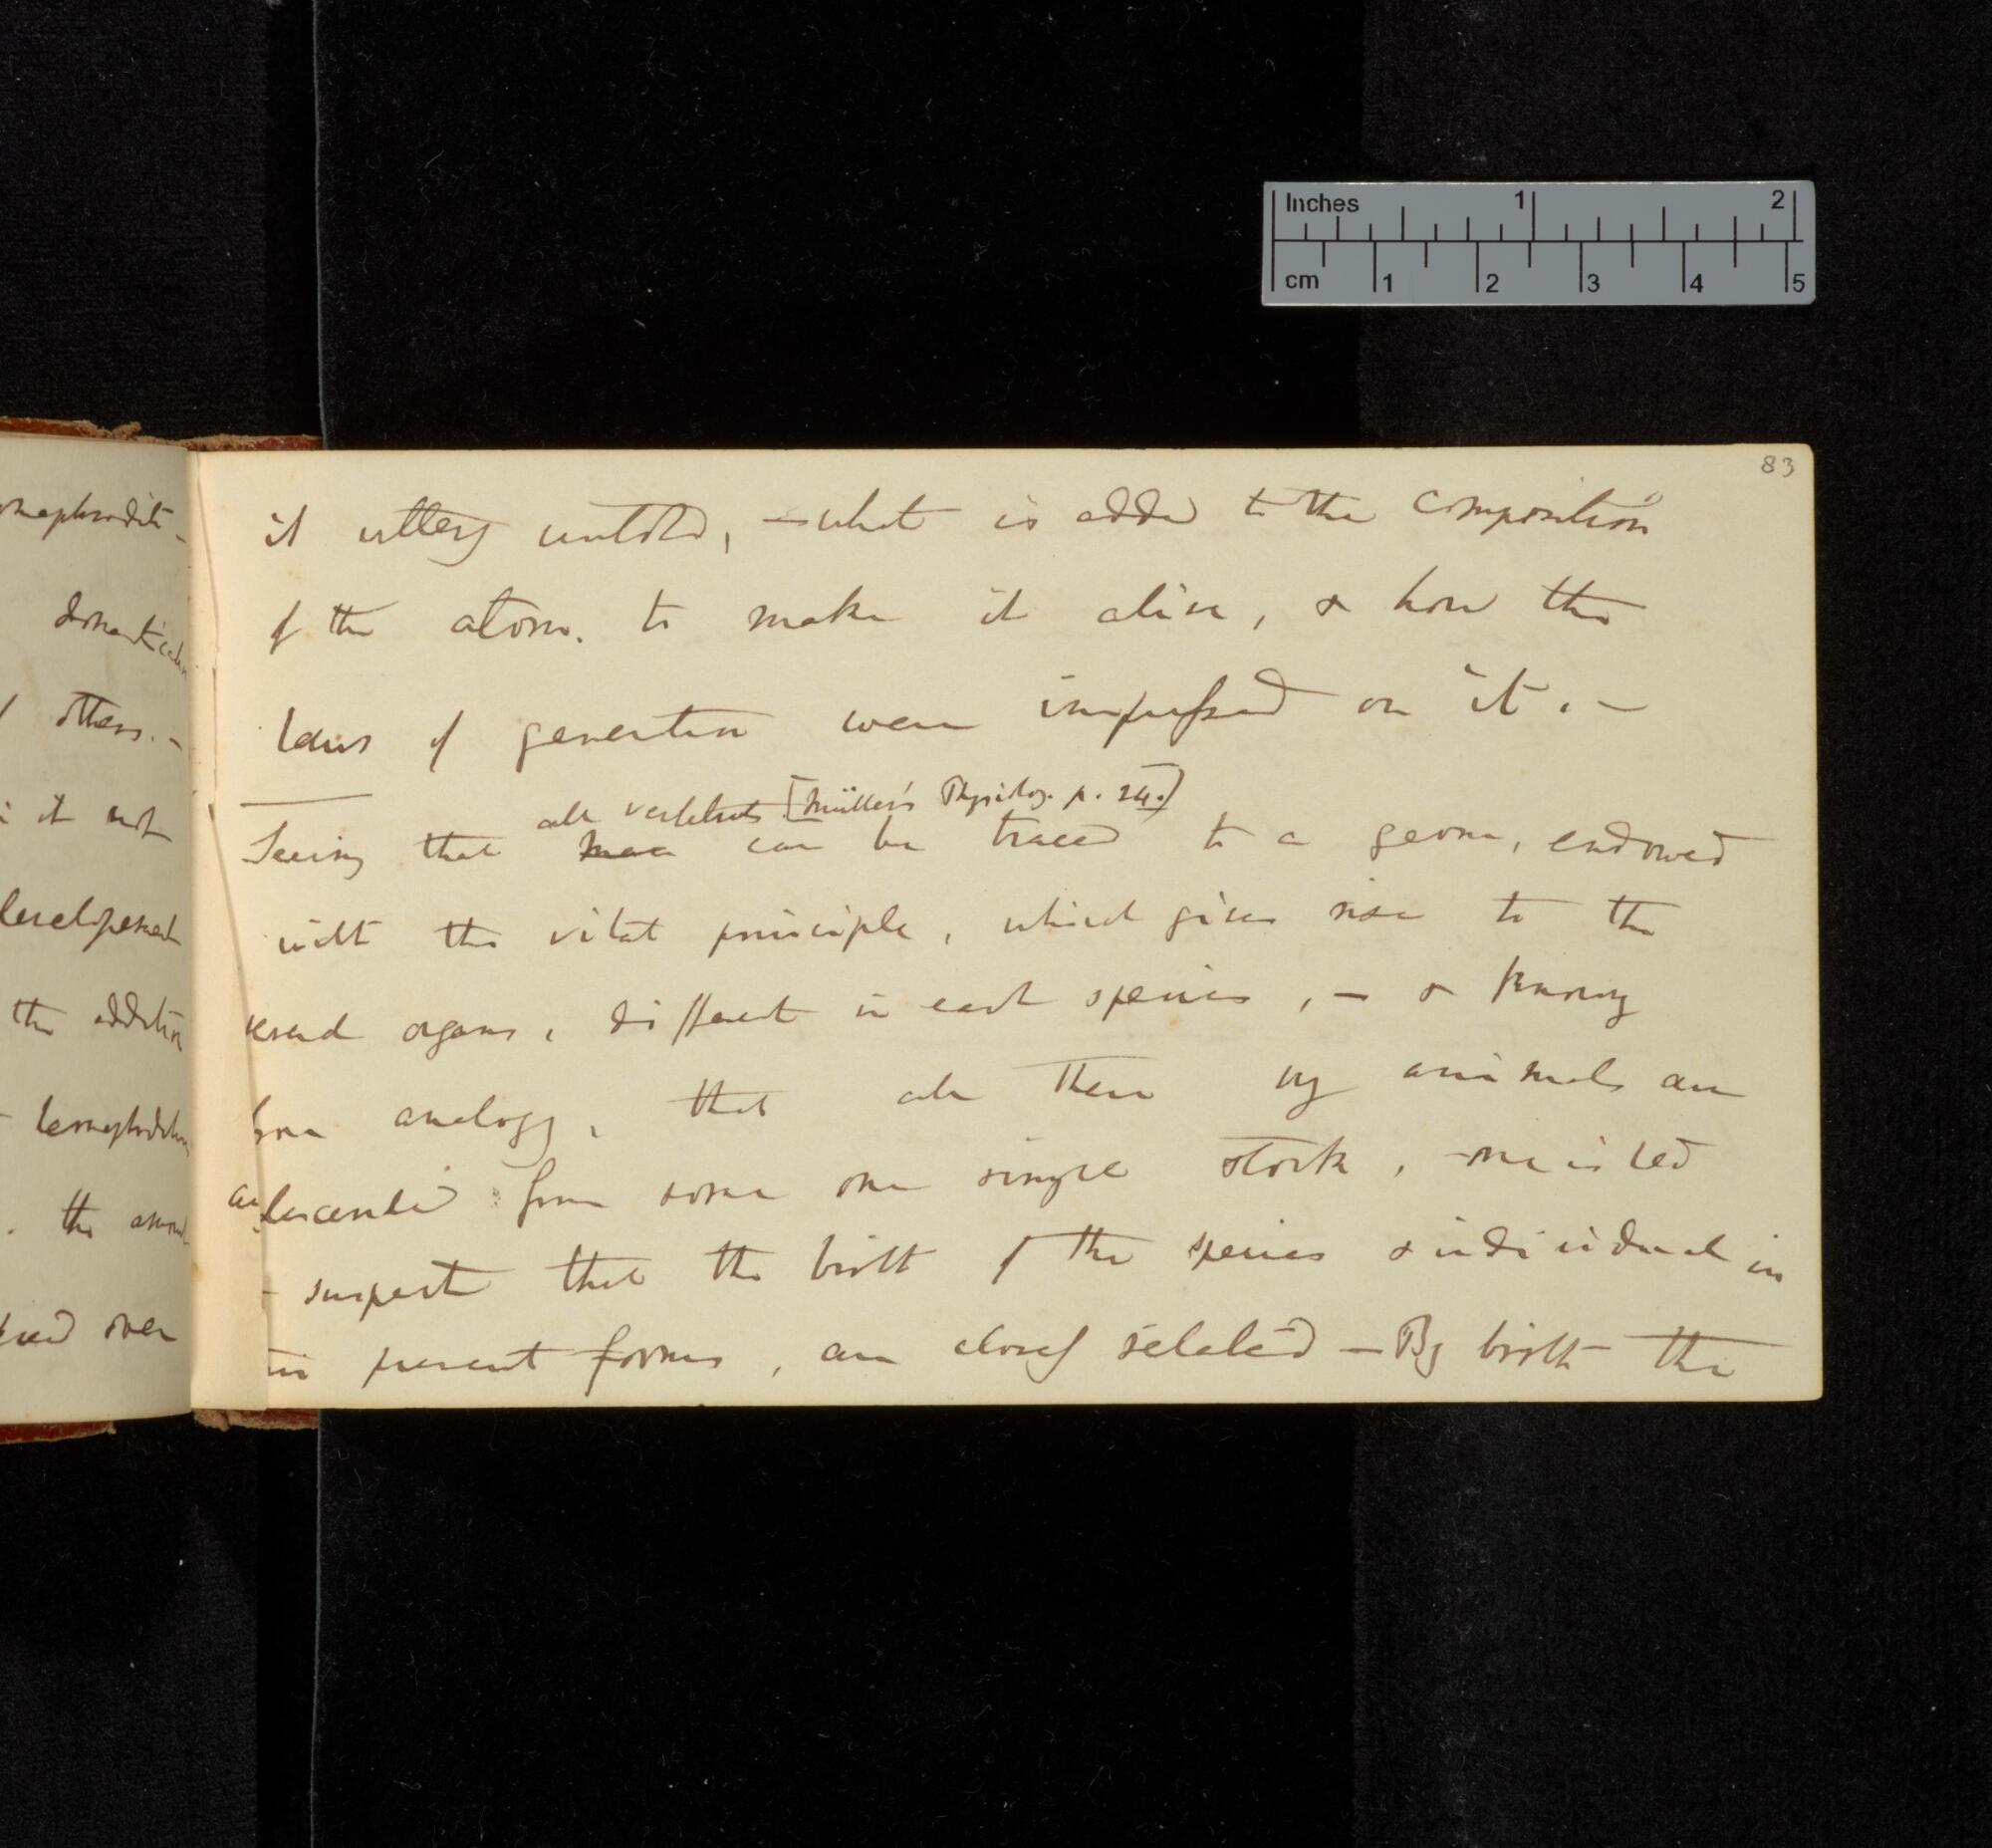 omaphrodite -
domestication
others. -
it not
developement
the addition
hermaphrodite
. the animal
over
Inches 1 2
cm 1 2 3 4 5
83
it uttery untold, — what is added to the composition
of the atom. to make it alive, & how the
laws of generation were impressed on it. —
all vertebrates [Müller's Physiology. p. 24.]
Seeing that man can be traced to a germ, endowed
with the vital principle, which gives rise to the
several organs, different in each species, — & knowing
from analogy, that all these by animals are
descended from some one single stock, — one is led
suspect that the birth of the species & individual in
present forms, are closely related — By birth the